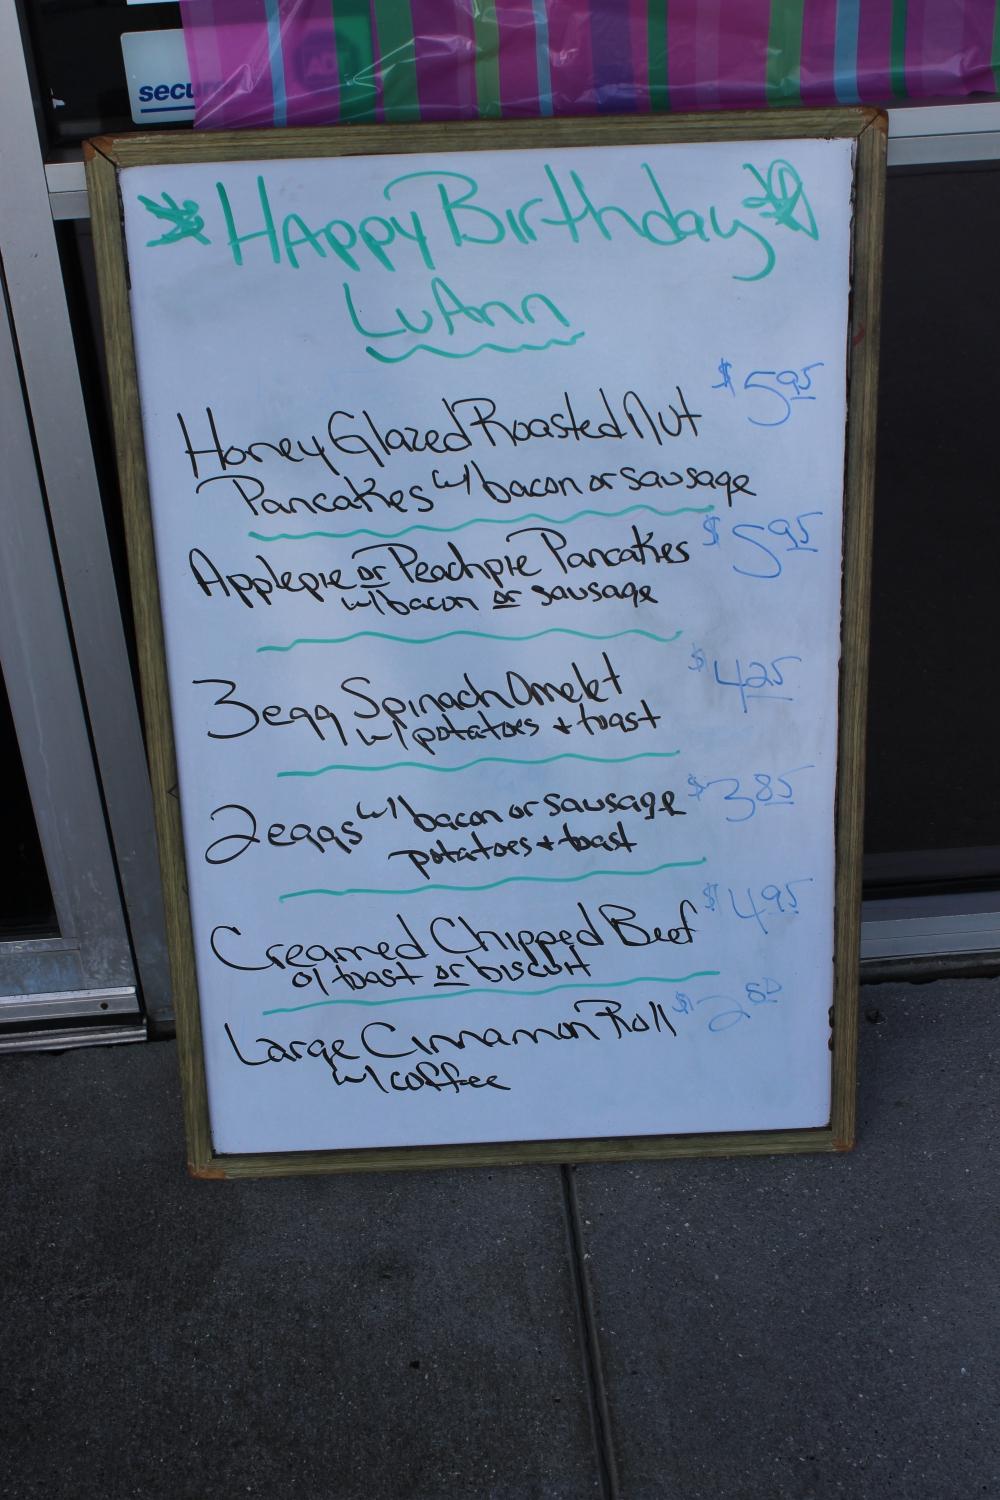 secu
Happy Birthday
LuAnn
Honey Glazed Roasted Nut $5.95
Pancakes w/ bacon or sausage
Applepie or Peachpie Pancakes $5.95
w/ bacon or sausage
3 egg Spinach Omelet $4.25
w/ potatoes + toast
2 eggs w/ bacon or sausage $3.85
potatoes + toast
Creamed Chipped Beef $4.95
o/ toast or biscuit
Large Cinnamon Roll $2.80
w/ coffee